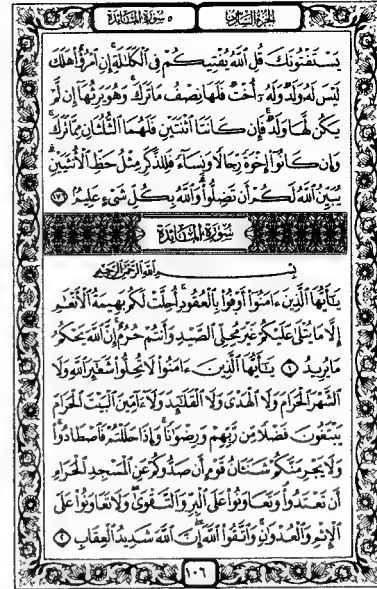 الجزء السادس ٥ سورة المائدة
يَسْتَفْتُونَكَ قُلِ ٱللَّهُ يُفْتِيكُمْ فِى ٱلْكَلَٰلَةِ إِنِ ٱمْرُؤٌا۟ هَلَكَ
لَيْسَ لَهُۥ وَلَدٌ وَلَهُۥٓ أُخْتٌ فَلَهَا نِصْفُ مَا تَرَكَ وَهُوَ يَرِثُهَآ إِن لَّمْ
يَكُن لَّهَا وَلَدٌ فَإِن كَانَتَا ٱثْنَتَيْنِ فَلَهُمَا ٱلثُّلُثَانِ مِمَّا تَرَكَ
وَإِن كَانُوٓا۟ إِخْوَةً رِّجَالًا وَنِسَآءً فَلِلذَّكَرِ مِثْلُ حَظِّ ٱلْأُنثَيَيْنِ
يُبَيِّنُ ٱللَّهُ لَكُمْ أَن تَضِلُّوا۟ وَٱللَّهُ بِكُلِّ شَىْءٍ عَلِيمٌ ١٧٦
سورة المائدة
بِسْمِ ٱللَّهِ ٱلرَّحْمَٰنِ ٱلرَّحِيمِ
يَٰٓأَيُّهَا ٱلَّذِينَ ءَامَنُوٓا۟ أَوْفُوا۟ بِٱلْعُقُودِ أُحِلَّتْ لَكُم بَهِيمَةُ ٱلْأَنْعَٰمِ
إِلَّا مَا يُتْلَىٰ عَلَيْكُمْ غَيْرَ مُحِلِّى ٱلصَّيْدِ وَأَنتُمْ حُرُمٌ إِنَّ ٱللَّهَ يَحْكُمُ
مَا يُرِيدُ ١ يَٰٓأَيُّهَا ٱلَّذِينَ ءَامَنُوا۟ لَا تُحِلُّوا۟ شَعَٰٓئِرَ ٱللَّهِ وَلَا
ٱلشَّهْرَ ٱلْحَرَامَ وَلَا ٱلْهَدْىَ وَلَا ٱلْقَلَٰٓئِدَ وَلَآ ءَآمِّينَ ٱلْبَيْتَ ٱلْحَرَامَ
يَبْتَغُونَ فَضْلًا مِّن رَّبِّهِمْ وَرِضْوَٰنًا وَإِذَا حَلَلْتُمْ فَٱصْطَادُوا۟
وَلَا يَجْرِمَنَّكُمْ شَنَـَٔانُ قَوْمٍ أَن صَدُّوكُمْ عَنِ ٱلْمَسْجِدِ ٱلْحَرَامِ
أَن تَعْتَدُوا۟ وَتَعَاوَنُوا۟ عَلَى ٱلْبِرِّ وَٱلتَّقْوَىٰ وَلَا تَعَاوَنُوا۟ عَلَى
ٱلْإِثْمِ وَٱلْعُدْوَٰنِ وَٱتَّقُوا۟ ٱللَّهَ إِنَّ ٱللَّهَ شَدِيدُ ٱلْعِقَابِ ٢
١٠٦